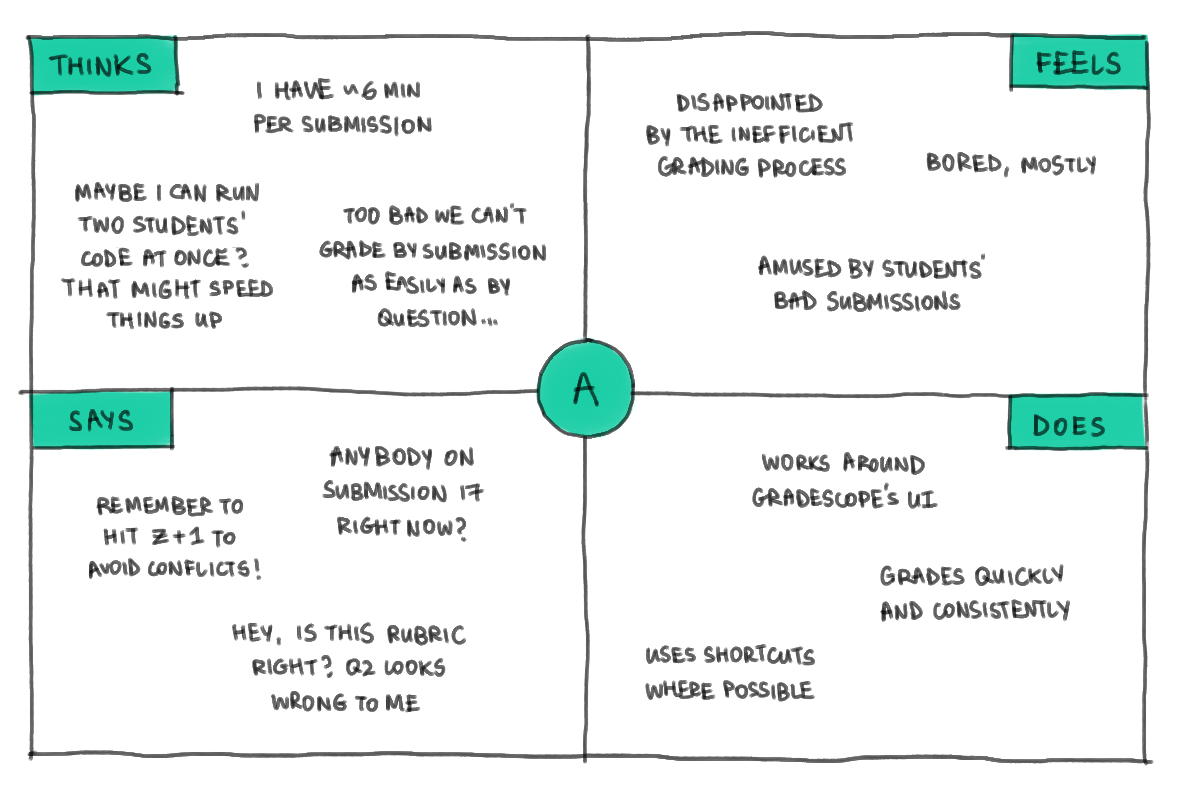 THINKS
I HAVE ~6 MIN
PER SUBMISSION
MAYBE I CAN RUN
TWO STUDENTS'
CODE AT ONCE?
THAT MIGHT SPEED
THINGS UP
TOO BAD WE CAN'T
GRADE BY SUBMISSION
AS EASILY AS BY
QUESTION...
FEELS
DISAPPOINTED
BY THE INEFFICIENT
GRADING PROCESS
BORED, MOSTLY
AMUSED BY STUDENTS'
BAD SUBMISSIONS
A
SAYS
ANYBODY ON
SUBMISSION 17
RIGHT NOW?
REMEMBER TO
HIT Z+1 TO
AVOID CONFLICTS!
HEY, IS THIS RUBRIC
RIGHT? Q2 LOOKS
WRONG TO ME
DOES
WORKS AROUND
GRADESCOPE'S UI
GRADES QUICKLY
AND CONSISTENTLY
USES SHORTCUTS
WHERE POSSIBLE